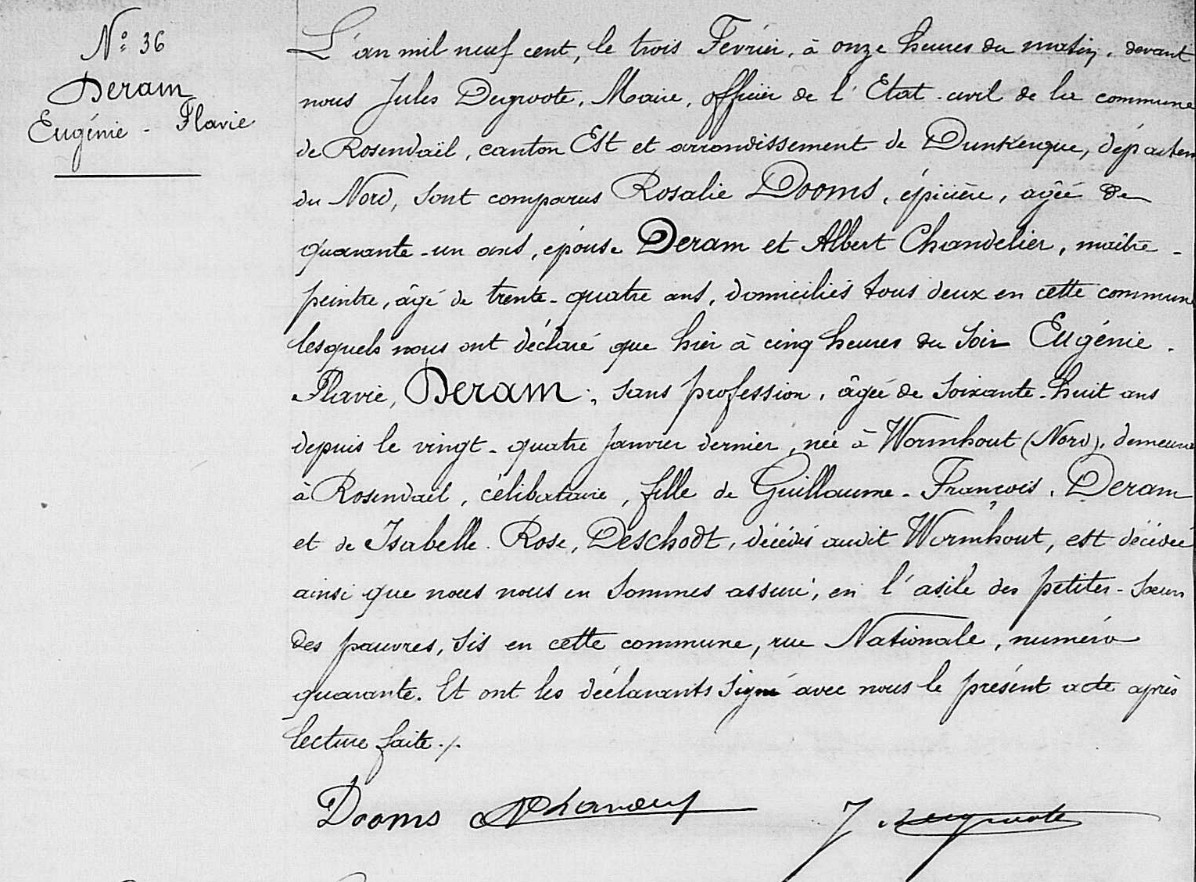 N° 36
Deram
Eugénie - Flavie
L'an mil neuf cent, le trois Février, à onze heures du matin, devant
nous Jules Degroote, Maire, officier de l'Etat-civil de la commune
de Rosendaël, canton Est et arrondissement de Dunkerque, départem
du Nord, sont comparus Rosalie Dooms, épicière, agée de
quarante-un ans, épouse Deram et Albert Chandelier, maître-
peintre, âgé de trente-quatre ans, domiciliés tous deux en cette commune
lesquels nous ont déclaré que hier à cinq heures du soir Eugénie-
Flavie, Deram, sans profession, âgée de soixante-huit ans
depuis le vingt-quatre Janvier dernier, née à Wormhout (Nord), demeura
à Rosendaël, célibataire, fille de Guillaume-François, Deram
et de Isabelle-Rose, Deschodt, décédés audit Wormhout, est décédée
ainsi que nous nous en sommes assuré, en l'asile des petites-soeurs
des pauvres, sis en cette commune, rue Nationale, numéro
quarante. Et ont les déclarants signé avec nous le présent acte après
lecture faite ./.
Dooms
J. Degroote